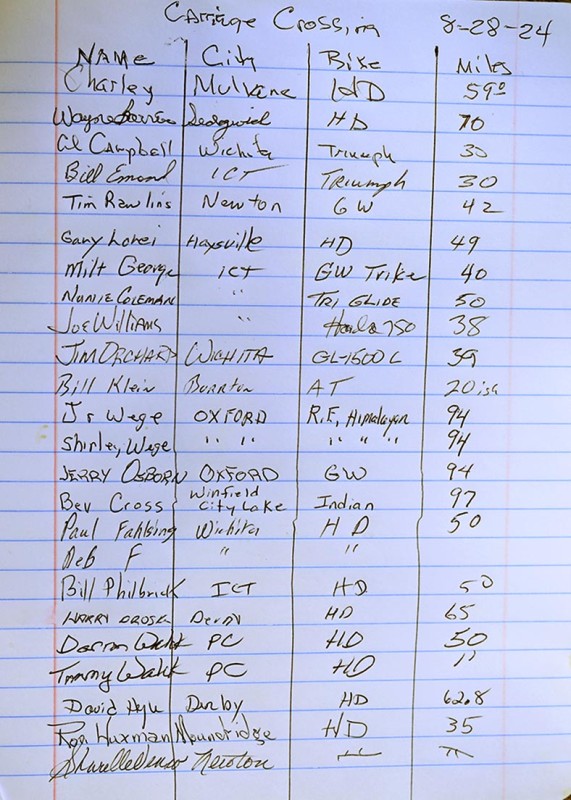 Carriage Crossing 8-28-24
NAME City Bike Miles
Charley Mulvane HD 59⁰
Wayne Sedgwick HD 70
Al Campbell Wichita Triumph 30
Bill Emond ICT Triumph 30
Tim Rawlins Newton GW 42
Gary Lorei Haysville HD 49
Milt George ICT GW Trike 40
Nonie Coleman " TRI GLIDE 50
Joe Williams " Honda 750 38
Jim Orchard Wichita GL-1500 C 39
Bill Klein Burrton AT 20ish
Jr Wege OXFORD R.E. Himalayan 94
Shirley Wege " " " " " 94
JERRY OSBORN OXFORD GW 94
Bev Cross Winfield City Lake Indian 97
Paul Fahlsing Wichita HD 50
Deb F " "
Bill Philbrick ICT HD 50
HARRY Derby HD 65
PC HD 50
Tammy PC HD "
David Derby HD 62.8
Ron Huxman Moundridge HD 35
Newton